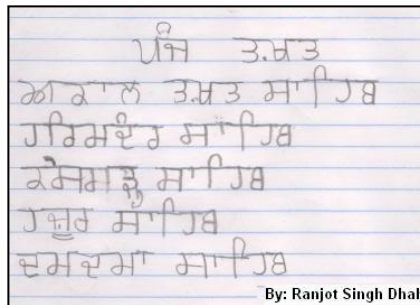 ਪੰਜ ਤ.ਖਤ
ਅਕਾਲ ਤ.ਖਤ ਸਾਹਿਬ
ਹਰਿਮੰਦਰ ਸਾਹਿਬ
ਸਾਹਿਬ
ਹਜ਼ੂਰ ਸਾਹਿਬ
ਦਮਦਮਾ ਸਾਹਿਬ
By: Ranjot Singh Dhal